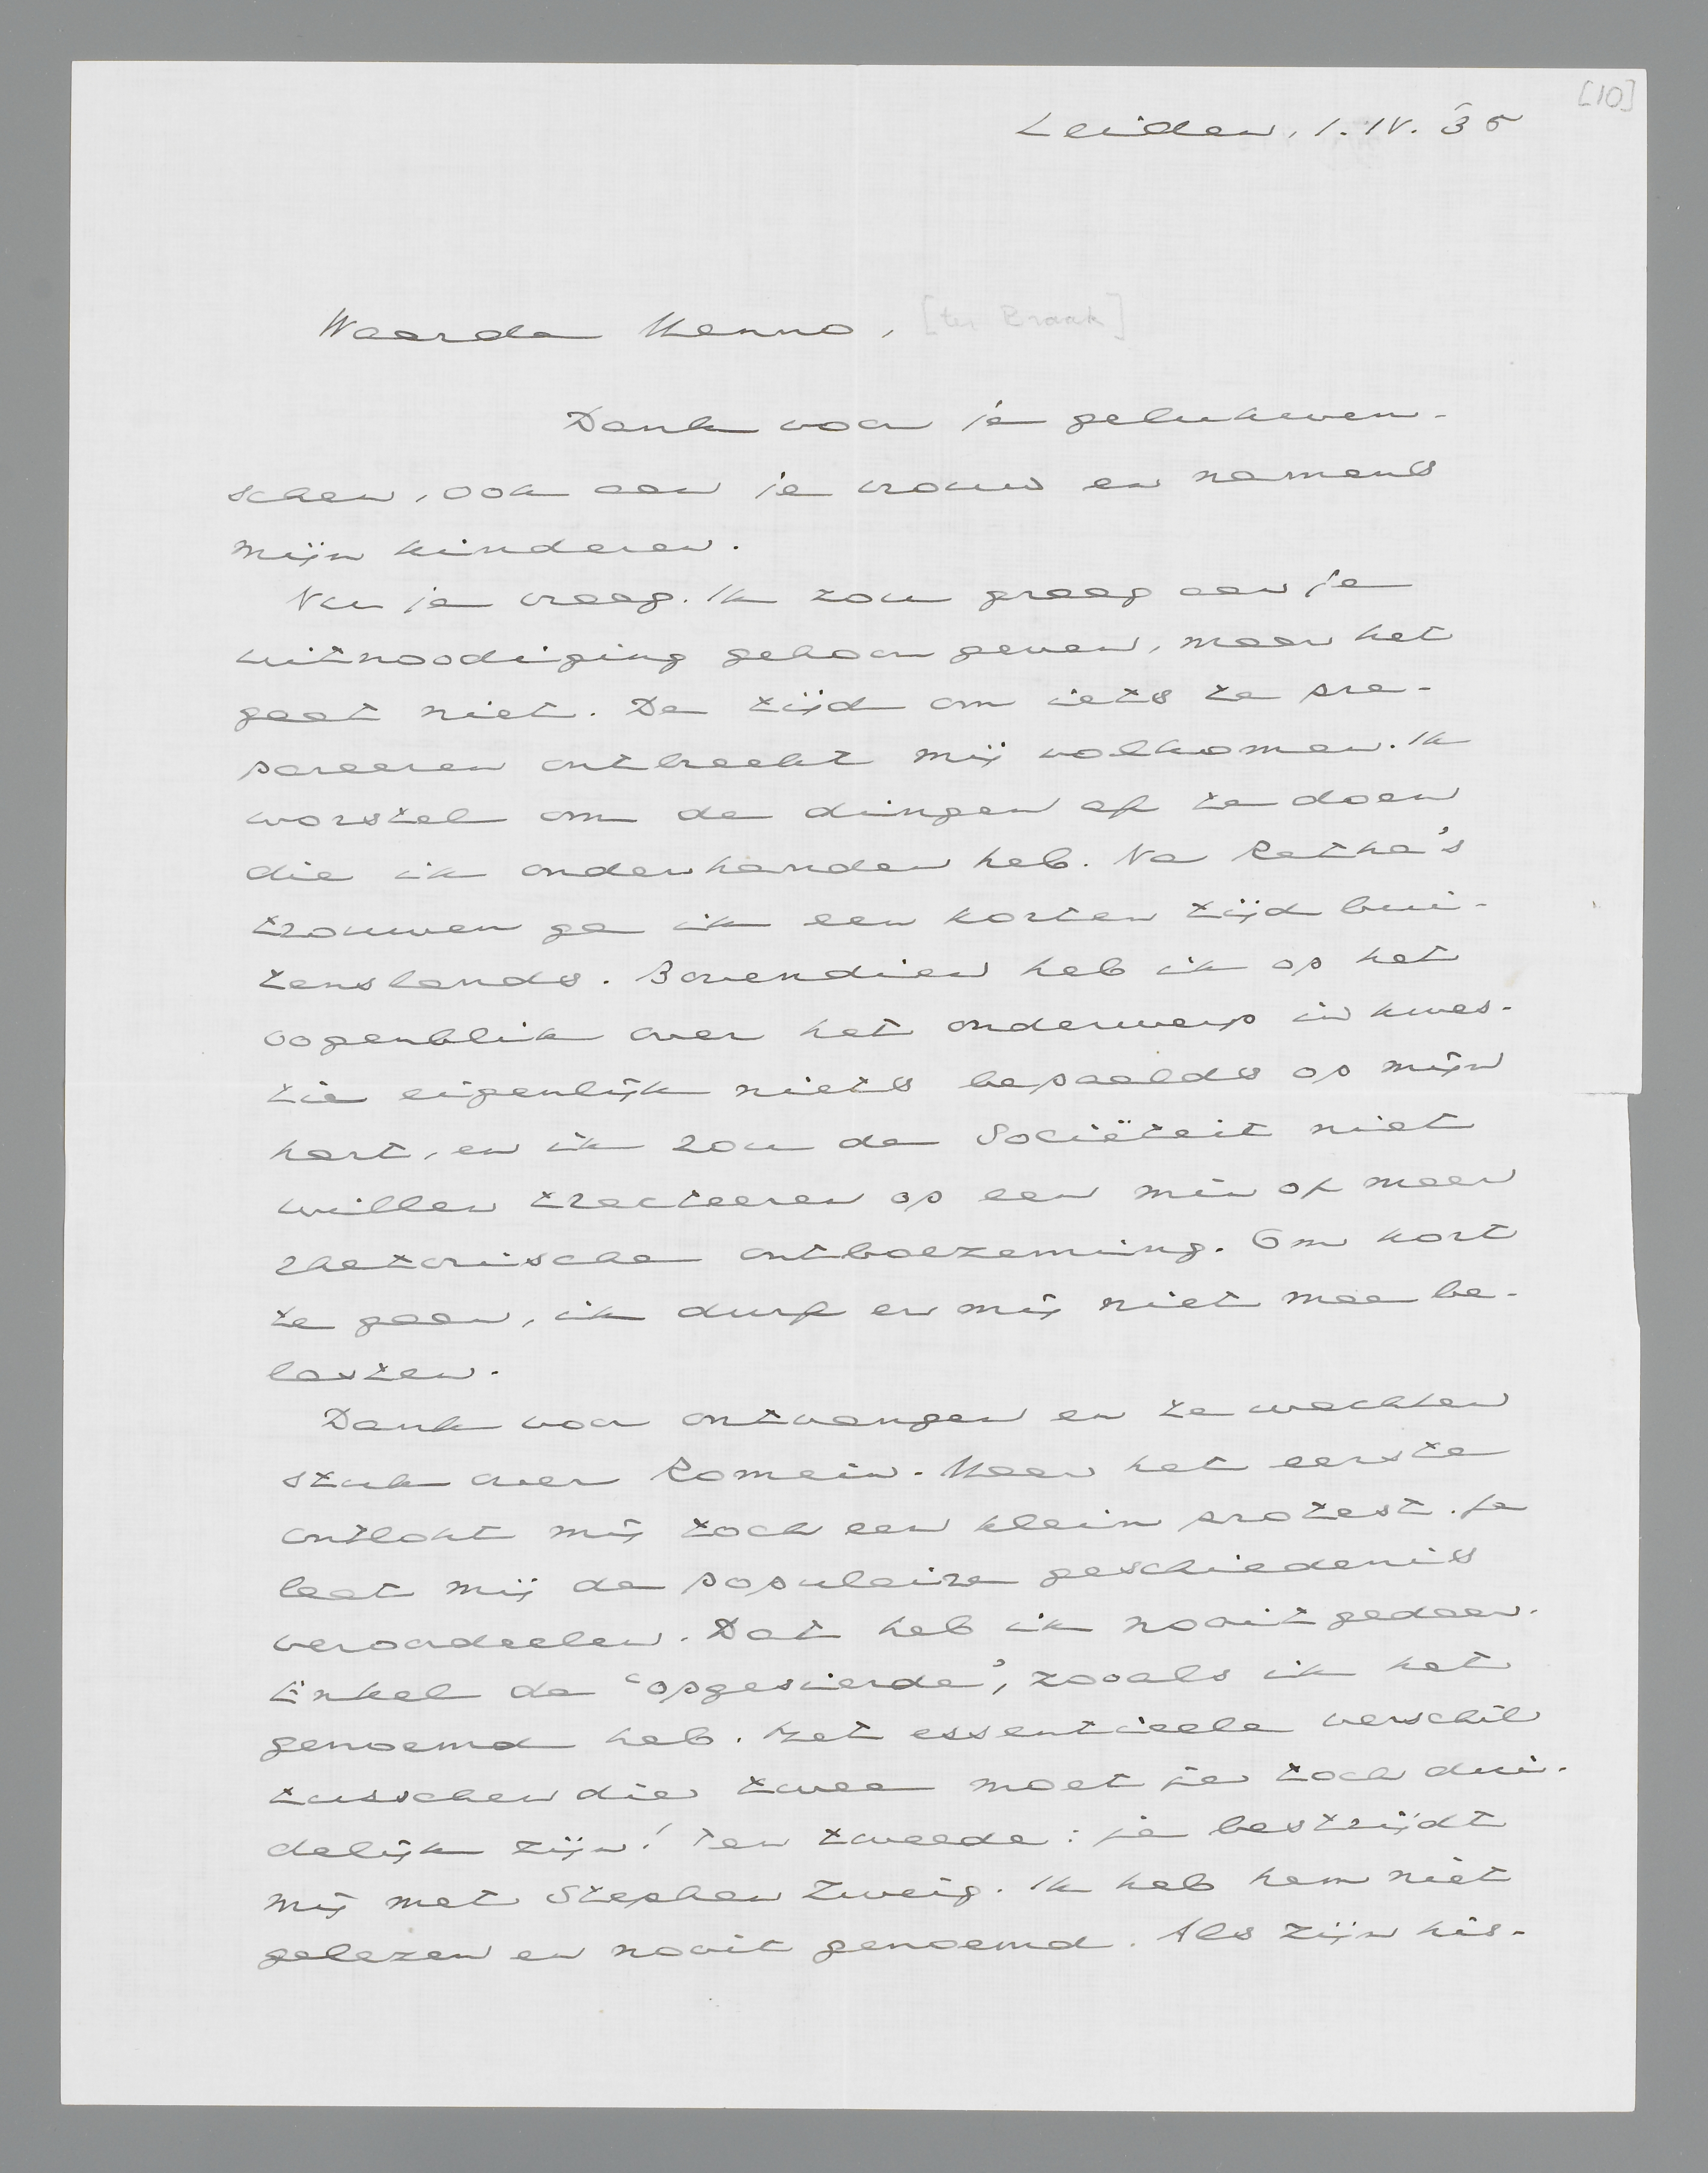 [10]
Leiden, 1.IV.35
Waarde Menno, [ter Braak]
Dank voor je gelukwen-
schen, ook aan je vrouw en namens
mijn kinderen.
Nu je vraag. Ik zou graag aan je
uitnoodiging gehoor geven, maar het
gaat niet. De tijd om iets te pre-
pareeren ontbreekt mij volkomen. Ik
worstel om de dingen af te doen
die ik onderhanden heb. Na Retha's
trouwen ga ik een korten tijd bui-
tenslands. Bovendien heb ik op het
oogenblik over het onderwerp in kwes-
tie eigenlijk niets bepaalds op mijn
hart, en ik zou de Sociëteit niet
willen tracteeren op een min of meer
rhetorische ontboezeming. Om kort
te gaan, ik durf er mij niet mee be-
lasten.
Dank voor ontvangen en te wachten
stuk over Romein. Maar het eerste
ontlokt mij toch een klein protest. Je
laat mij de populaire geschiedenis
veroordeelen. Dat heb ik nooit gedaan.
Enkel de 'opgesierde', zooals ik het
genoemd heb. Het essentieele verschil
tusschen die twee moet je toch dui-
delijk zijn! Ten tweede: je bestrijdt
mij met Stephan Zweig. Ik heb hem niet
gelezen en nooit genoemd. Als zijn his-